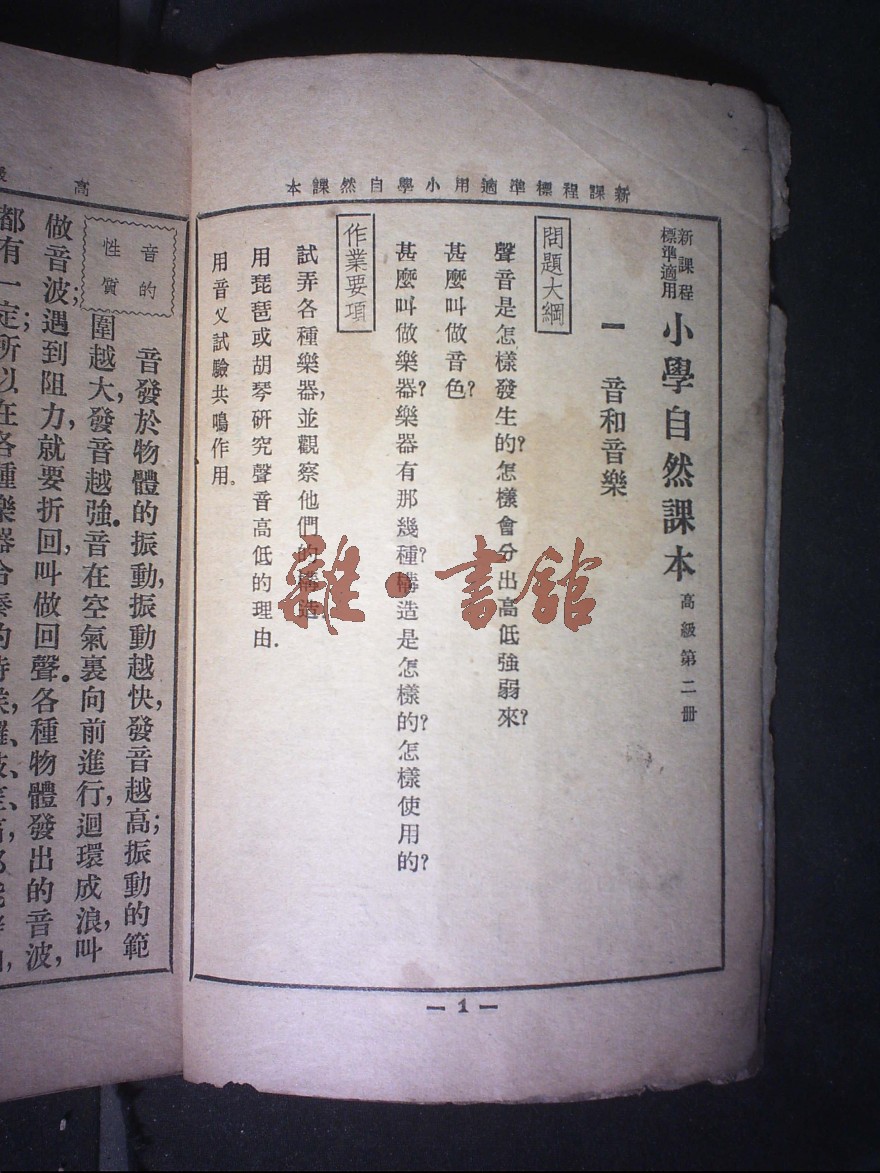 新課程標準適用小學自然課本
新課程標準適用 小學自然課本 高級第二冊
一 音和音樂
問題大綱
聲音是怎樣發生的?怎樣會分出高低強弱來?
甚麼叫做音色?
甚麼叫做樂器?樂器有那幾種?構造是怎樣的?怎樣使用的?
作業要項
試弄各種樂器,並觀察他們的構造.
用琵琶或胡琴研究聲音高低的理由.
用音叉試驗共鳴作用.
— 1 —
雜·書館
高
音的性質
音發於物體的振動,振動越快,發音越高;振動的範
圍越大,發音越強.音在空氣裏向前進行,迴環成浪,叫
做音波;音波遇到阻力,就要折回,叫做回聲.各種物體發出的音波,
都有一定;所以在各種樂器合奏的時候,